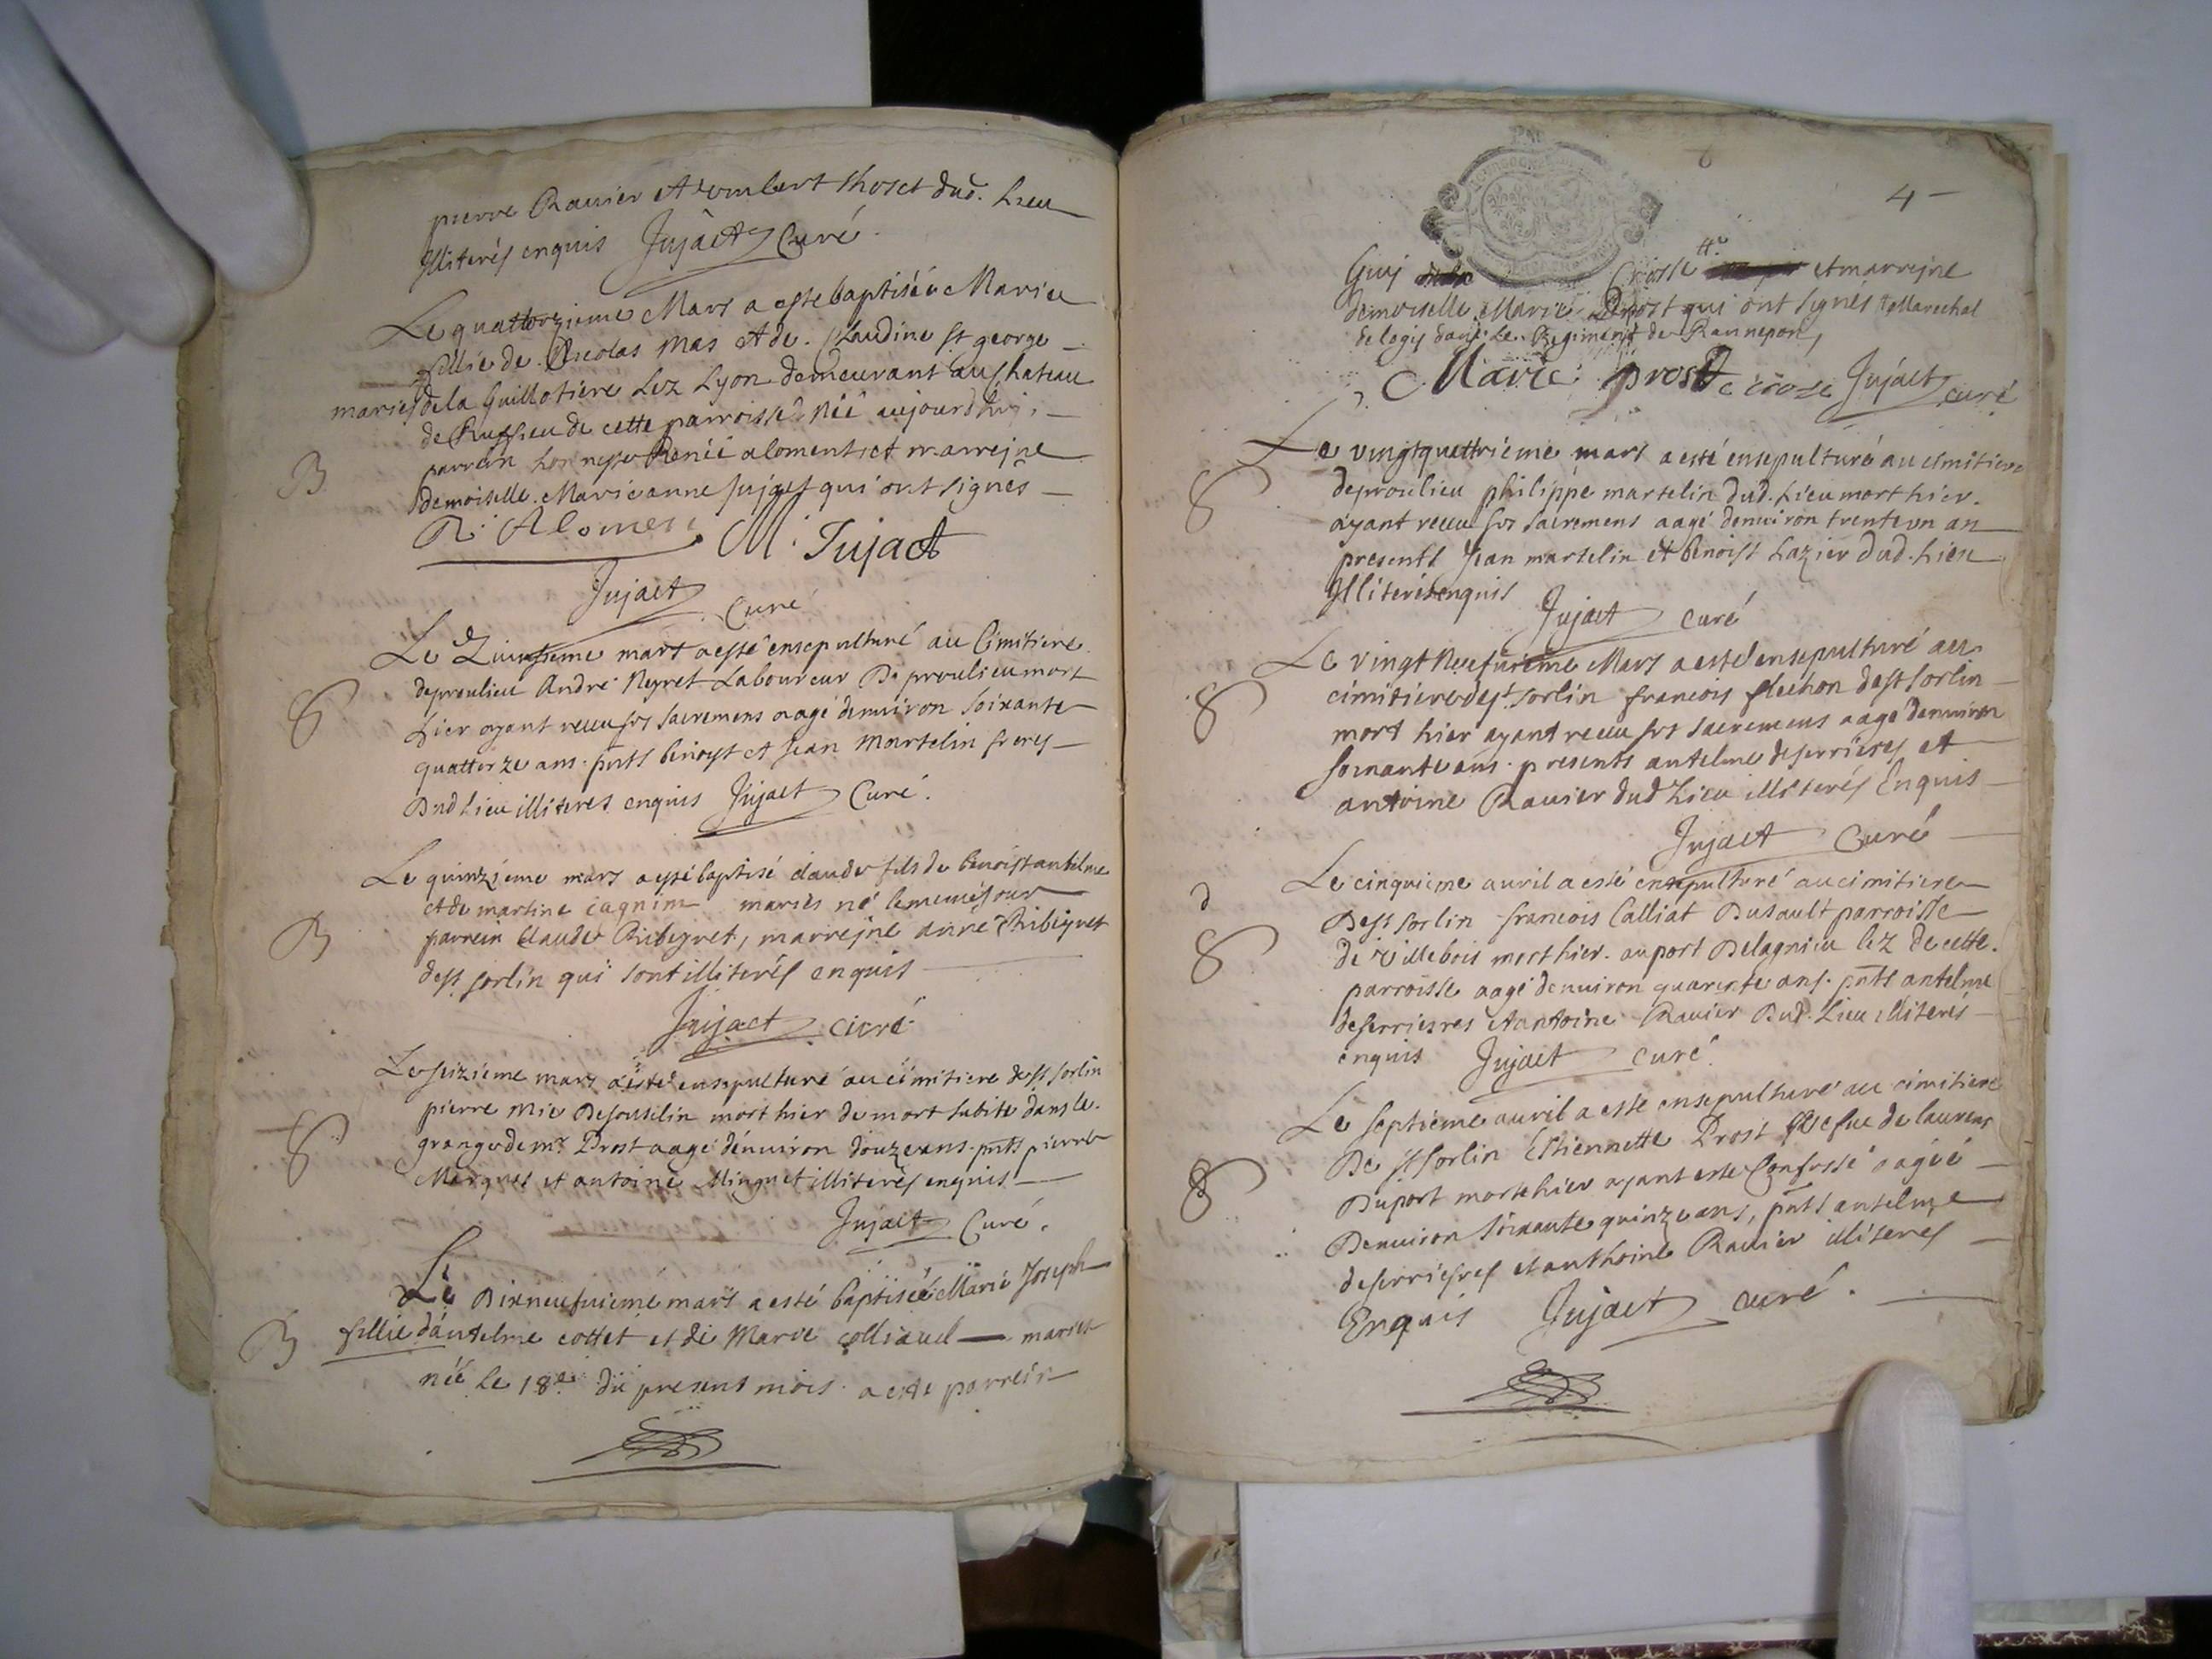 pierre Rauier et humbert thoset dud. Lieu
Illiterés enquis Jujact Curé.
Le quattorzieme Mars a esté baptiséé Marie
fillie de Nicolas Mas et de Claudine St george
mariés de la Guillotiere Lez Lyon demeurant au Chateau
de Ruffieu de cette parroisse néé aujourdhuj,
B
parrein honneste Renéé alomens et marrejne
demoiselle Marieanne Jujact qui ont signés
R. Alomen M. Jujact
Jujact Curé
Le quinzieme mars a esté ensepulturé au Cimitiere
S
de proulieu André Neyret Laboureur De proulieu mort
hier ayant receu ses sacremens aagé denuiron soixante
quattorze ans. pnts benoist et Jean Martelin freres
Dud Lieu illiteres enquis Jujact Curé.
Le quinzieme mars a esté baptisé claude fils de benoist antelme
et de martine cagnin mariés né le meme jour
B
parrein Claude Ribeyret, marrejne anne Ribeyret
de st. sorlin qui sont illiterés enquis
Jujact curé
Le seizieme mars a esté ensepulturé au cimitiere de st sorlin
S
pierre Mie De mort hier de mort subite dans le.
grange de mr. Prost aagé denuiron douze ans. pnts pierre
Merguet et antoine Minguet illiterés enquis
Jujact Curé.
Le Dixneufuieme mars a esté baptiséé Marie Joseph
B
fillie d'antelme cottet et de Marie colliaud mariés
néé le 18e. du present mois. a esté parrein
4
Guij Crosse et marrejne
demoiselle Marie Prost qui ont signés Marechal
de logis dans le Regiment de Rannepon,
Marie prost crose Jujact curé
Le vingtquattrieme mars a esté ensepulturé au cimitiere
S
de proulieu philippe martelin dud. Lieu mort hier.
ayant receu ses sacremens aagé denuiron trente un an
presents Jean martelin et benoist Lazier dud. Lieu
Illiterés enquis Jujact curé
Le vingt Neufuieme Mars a esté ensepulturé au
S
cimitiere de st. sorlin francois flechon de st sorlin
mort hier ayant receu ses sacremens aagé denuiron
soixante ans. presents antelme deserrieres et
antoine Rauier dud Lieu illiterés Enquis
Jujact Curé
Le cinquieme auril a esté ensepulturé au cimitiere
d
De st sorlin francois Calliat Dusault parroisse
S
de Villebois mort hier. au port Delagnieu lez de cette.
parroisse aagé denuiron quarente ans. pnts antelme
deserrieres et antoine Rauier Dud. Lieu illiterés
enquis Jujact curé
Le septieme auril a esté ensepulturé au cimitiere
De st sorlin Estiennette Prost vefue de laurens
S
Duport morte hier ayant esté Confessé aagéé
Denuiron soixante quinze ans, pnts antelme
deserrieres et anthoine Rauier illiterés
Enquis Jujact curé.